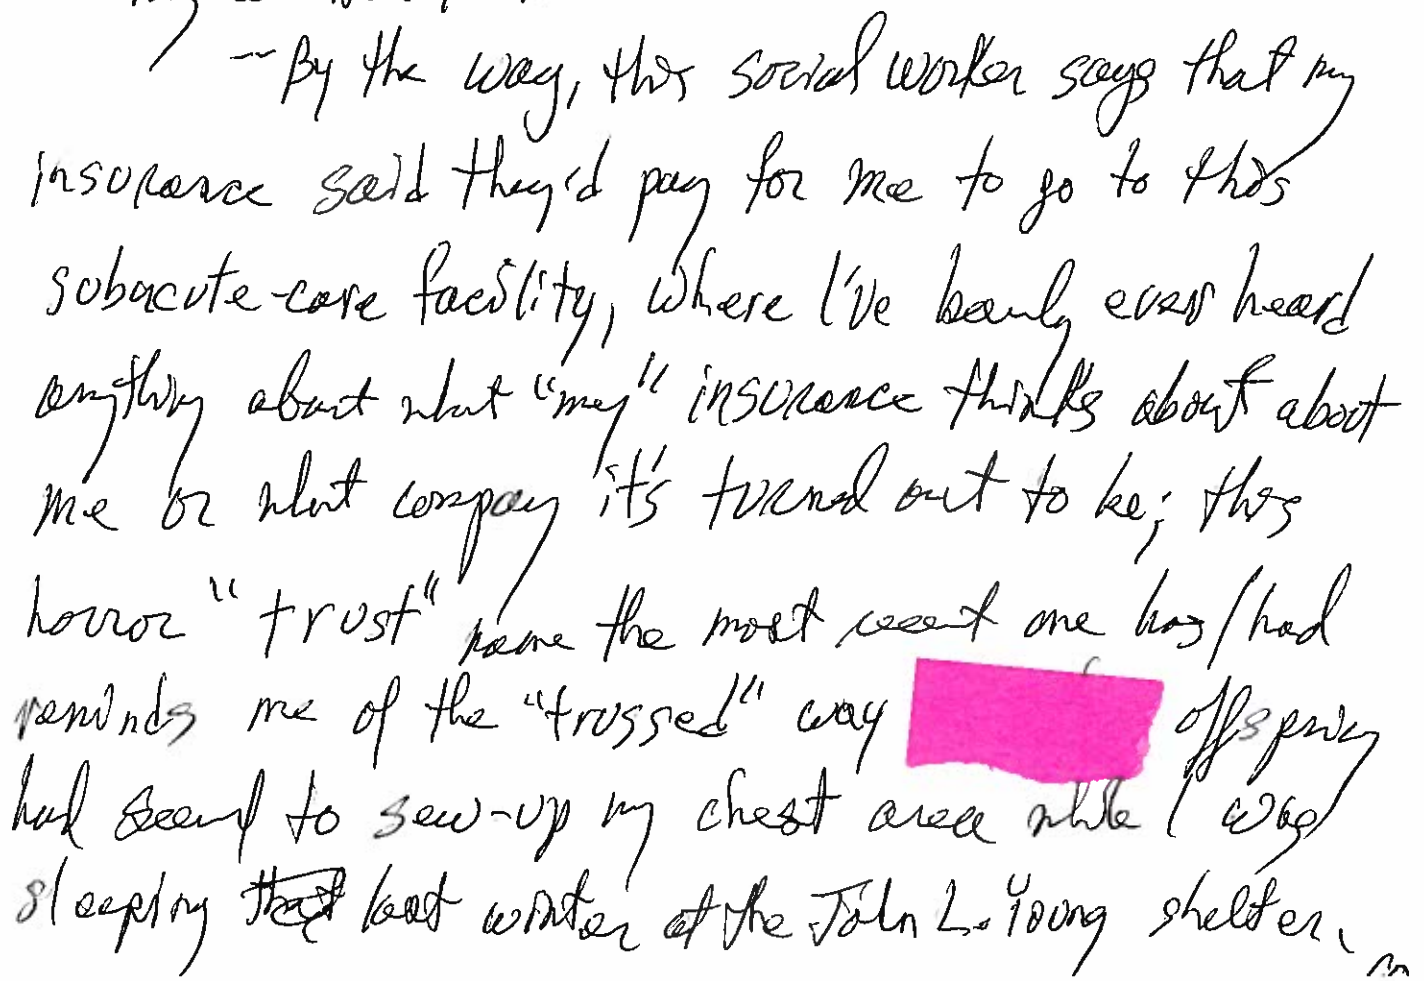 ~ By the way, this social worker says that my
insurance said they'd pay for me to go to this
subacute-care facility, where I've barely ever heard
anything about what "my" insurance thinks about about
me or what company it's turned out to be; this
horror "trust" name the most recent one has/had
reminds me of the "trussed" way offspring
had seemed to sew-up my chest area while I was
sleeping that last winter at the John L. Young shelter.